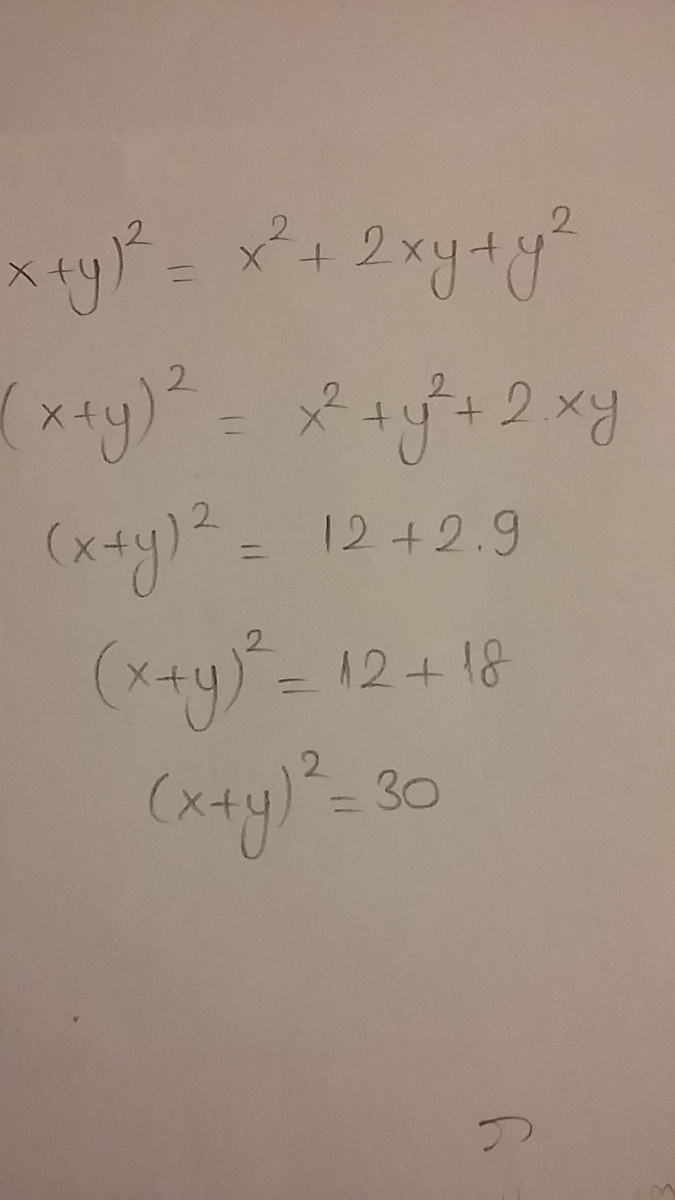 x+y)² = x² + 2xy + y²
(x+y)² = x² + y² + 2.xy
(x+y)² = 12 + 2.9
(x+y)² = 12 + 18
(x+y)² = 30